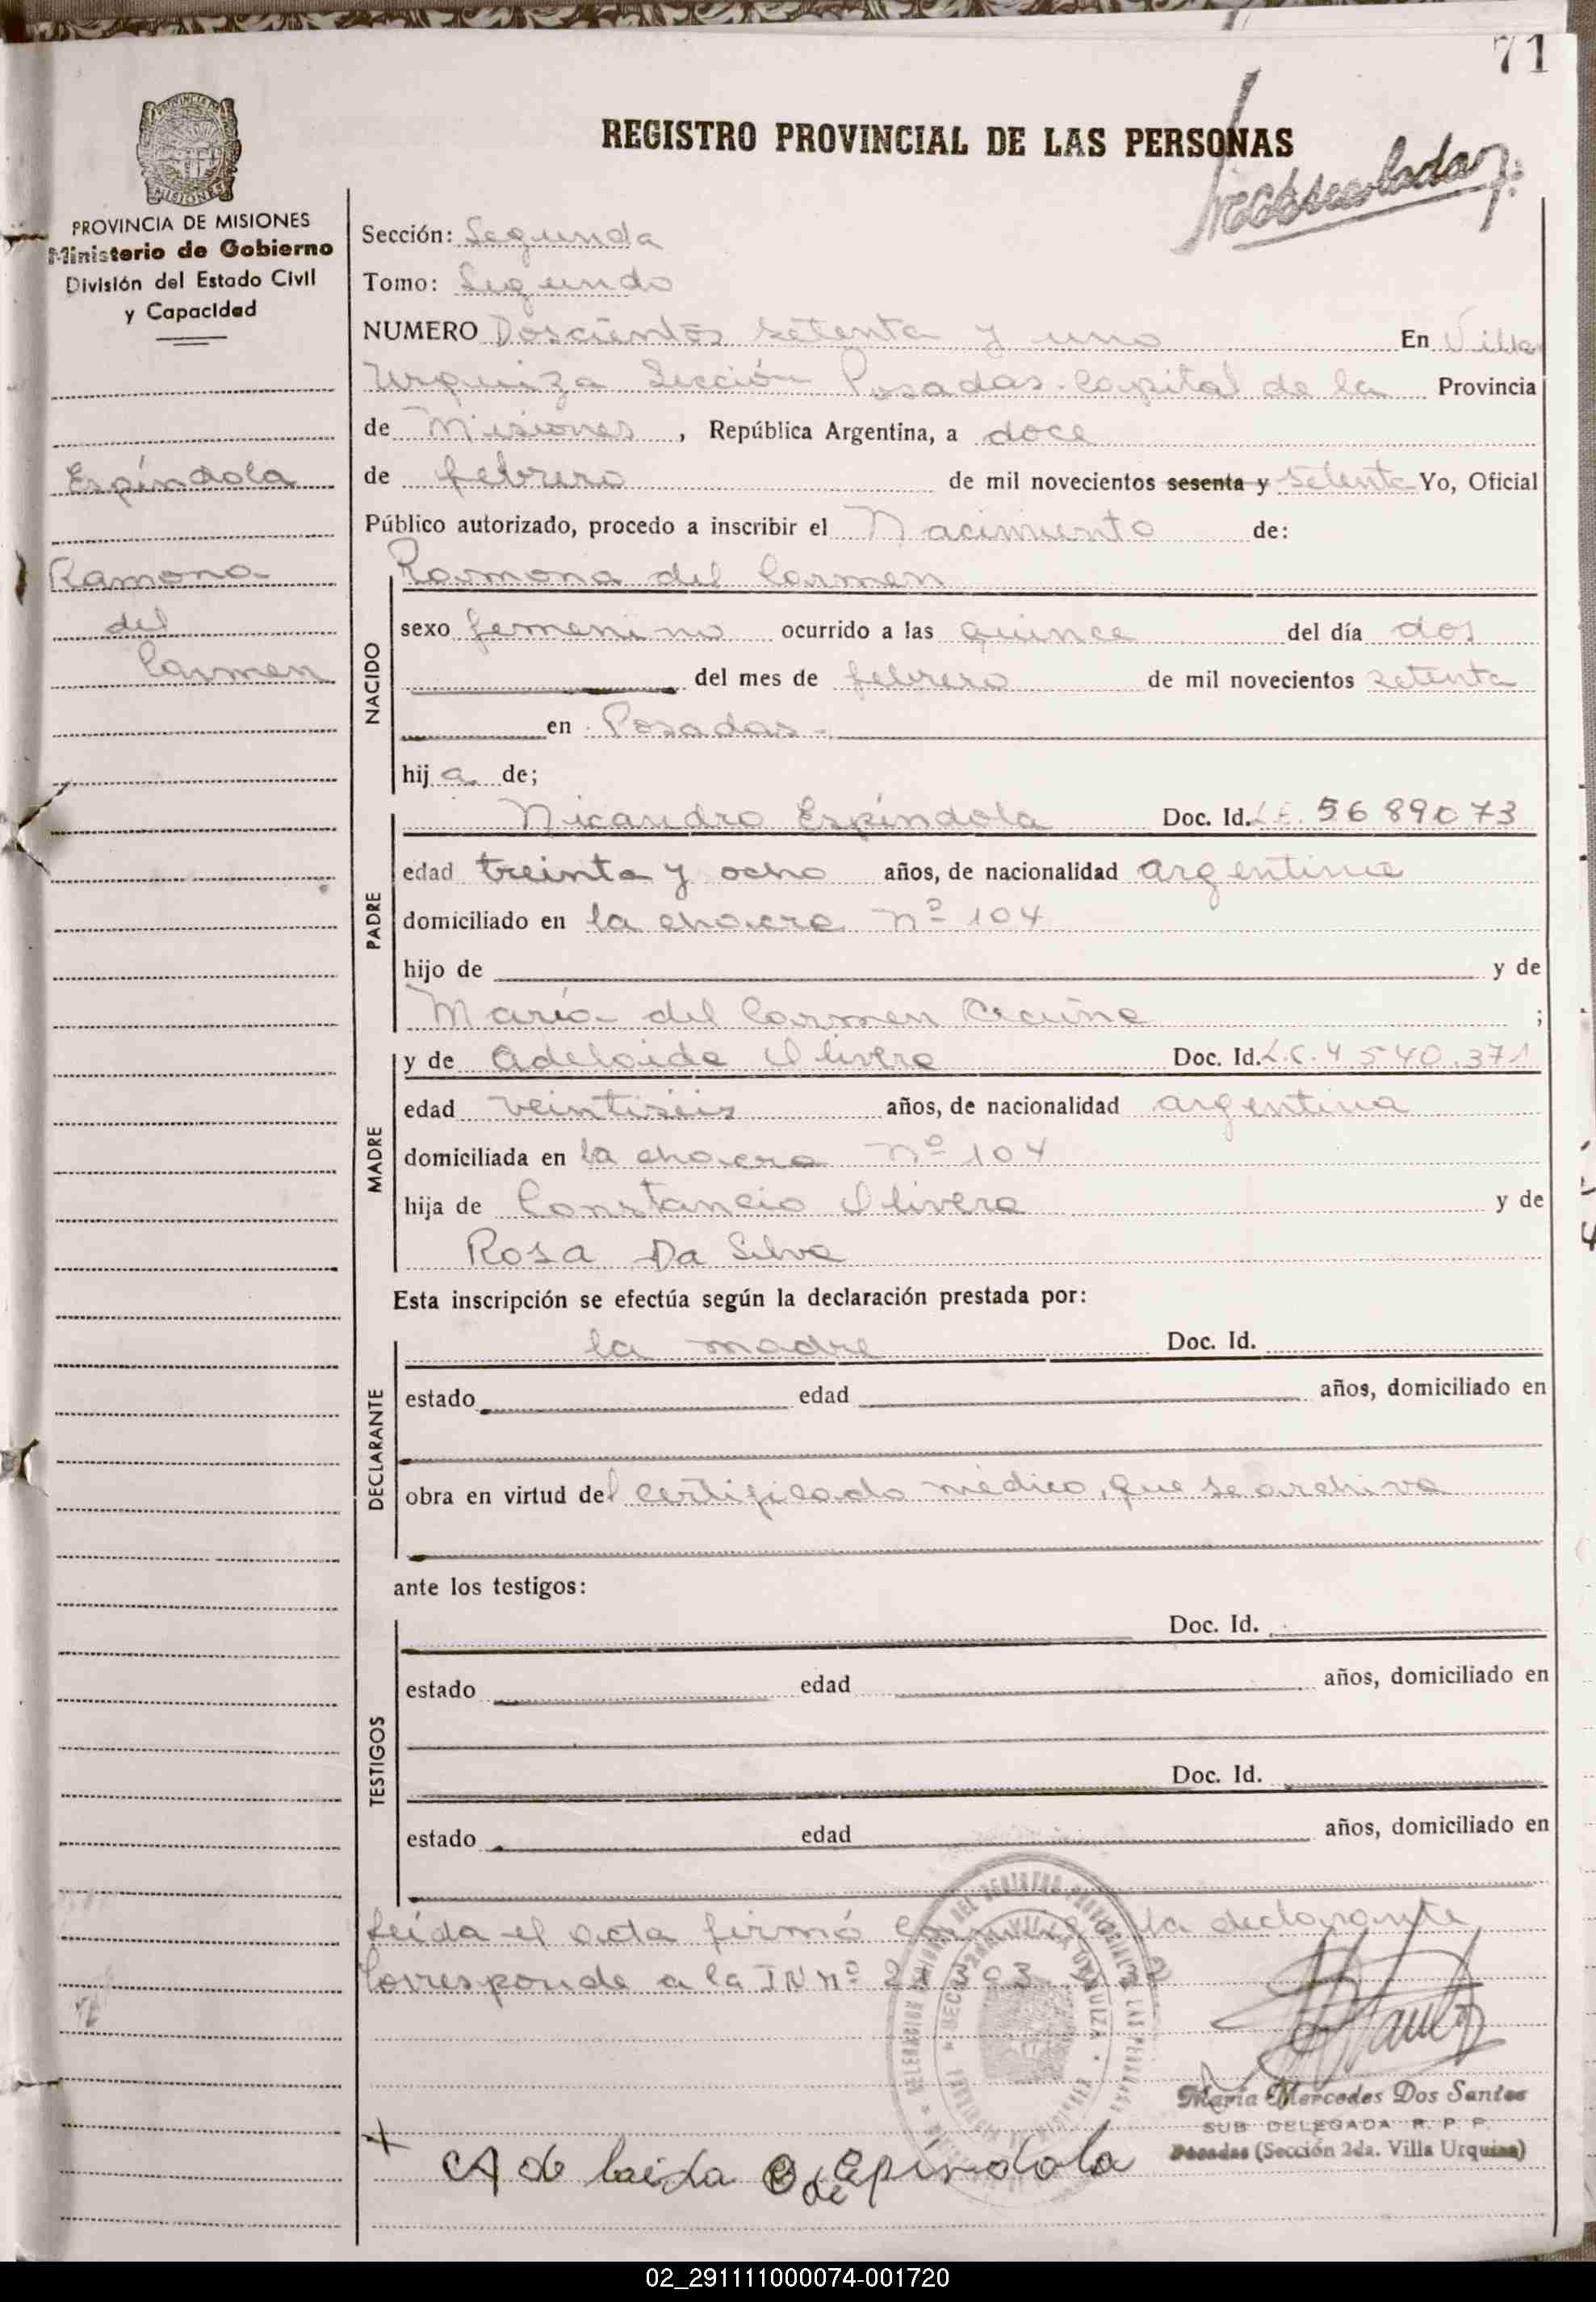 71
REGISTRO PROVINCIAL DE LAS PERSONAS
PROVINCIA DE MISIONES
Ministerio de Gobierno
División del Estado Civil
y Capacidad
Espíndola
Ramona
del
Carmen
Sección: Segunda
Tomo: Segundo
NUMERO Doscientos setenta y uno En Villa
Urquiza Sección Posadas Capital de la Provincia
de Misiones, República Argentina, a doce
de febrero de mil novecientos sesenta y setenta Yo, Oficial
Público autorizado, procedo a inscribir el Nacimiento de:
NACIDO
Ramona del Carmen
sexo femenino ocurrido a las quince del día dos
del mes de febrero de mil novecientos setenta
en Posadas
hija de;
PADRE
Nicandro Espíndola Doc. Id. L.E. 5689073
edad treinta y ocho años, de nacionalidad argentina
domiciliado en la chacra nº 104
hijo de y de
María del Carmen Acuña ;
MADRE
y de Adelaida Olivera Doc. Id. L.C. 4540.371
edad veintiseis años, de nacionalidad argentina
domiciliada en la chacra nº 104
hija de Constancio Olivera y de
Rosa Da Silva
Esta inscripción se efectúa según la declaración prestada por:
DECLARANTE
la madre Doc. Id.
estado edad años, domiciliado en
obra en virtud del certificado médico, que se archiva
ante los testigos:
TESTIGOS
Doc. Id.
estado edad años, domiciliado en
Doc. Id.
estado edad años, domiciliado en
Leída el acta firmó conmigo la declarante
Corresponde a la IN nº
María Mercedes Dos Santos
SUB DELEGADA R. P. P.
Posadas (Sección 2da. Villa Urquiza)
Adelaida O de Epíndola
02_291111000074-001720